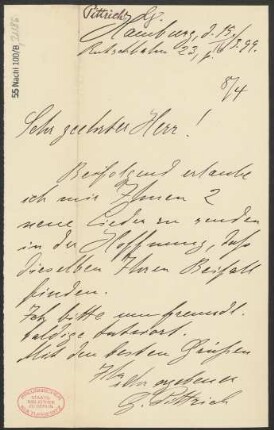 Pittrich, G.
55 Nachl 100/B
Hamburg, d. 15/3. 99.
Rutschbahn 23, I.
8/4
Sehr geehrter Herr!
Beifolgend erlaube
ich mir Ihnen 2
neue Lieder zu senden
in der Hoffnung, daß
dieselben Ihren Beifall
finden.
Ich bitte um freundl.
baldige Antwort.
Mit den besten Grüßen
Ihr
sehr ergebener
G. Pittrich